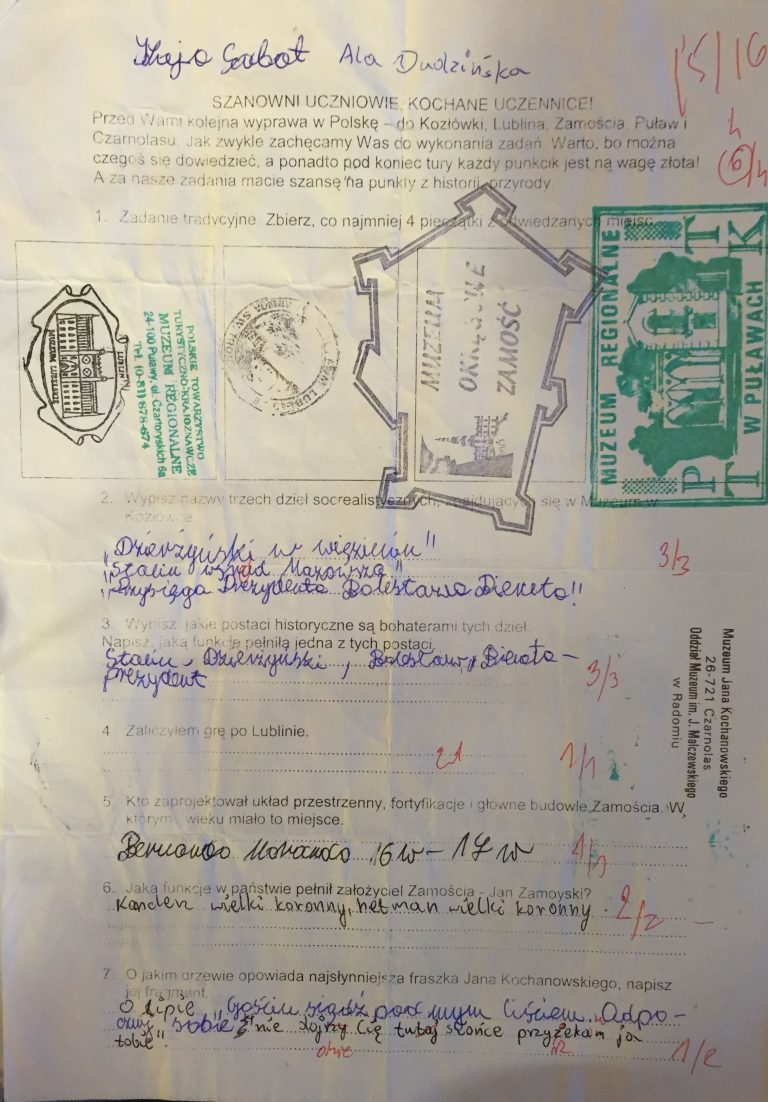 Ala Dudzińska
15/16
SZANOWNI UCZNIOWIE, KOCHANE UCZENNICE!
Przed Wami kolejna wyprawa w Polskę – do Kozłówki, Lublina, Zamościa, Puław i
Czarnolasu. Jak zwykle zachęcamy Was do wykonania zadań. Warto, bo można
czegoś się dowiedzieć, a ponadto pod koniec tury każdy punkcik jest na wagę złota!
A za nasze zadania macie szansę na punkty z historii, przyrody.
1. Zadanie tradycyjne. Zbierz, co najmniej 4 pieczątki z odwiedzanych miejsc.
LUBLIN
MUZEUM LUBELSKIE
POLSKIE TOWARZYSTWO
TURYSTYCZNO-KRAJOZNAWCZE
MUZEUM REGIONALNE
24-100 Puławy, ul. Czartoryskich 6a
Tel. (0-81) 878-674
MUZEUM
OKRĘGOWE
ZAMOŚĆ
MUZEUM REGIONALNE
PTTK
W PUŁAWACH
2. Wypisz nazwy trzech dzieł socrealistycznych, znajdujących się w Muzeum w
Kozłówce.
"Dzierżyński w więzieniu"
"Stalin wśród Mazowsza"
"Przysięga Prezydenta Bolesława Bieruta!"
3/3
3. Wypisz, jakie postaci historyczne są bohaterami tych dzieł.
Napisz, jaką funkcję pełniła jedna z tych postaci.
Stalin, Dzierżyński, Bolesław Bieruta –
prezydent
3/3
Muzeum Jana Kochanowskiego
26-721 Czarnolas
Oddział Muzeum im. J. Malczewskiego
w Radomiu
4. Zaliczyłem grę po Lublinie.
1/1
5. Kto zaprojektował układ przestrzenny, fortyfikacje i główne budowle Zamościa. W
którym wieku miało to miejsce.
Bernardo Morando 16 w – 17 w
1/1
6. Jaką funkcję w państwie pełnił założyciel Zamościa - Jan Zamoyski?
Kanclerz wielki koronny, hetman wielki koronny.
2/2
7. O jakim drzewie opowiada najsłynniejsza fraszka Jana Kochanowskiego, napisz
jej fragment.
O lipie "Gościu siądź pod mym liściem. Odpo-
cznij sobie, nie dojrzy Cię tutaj słońce przyżekam ja
tobie".
1/2